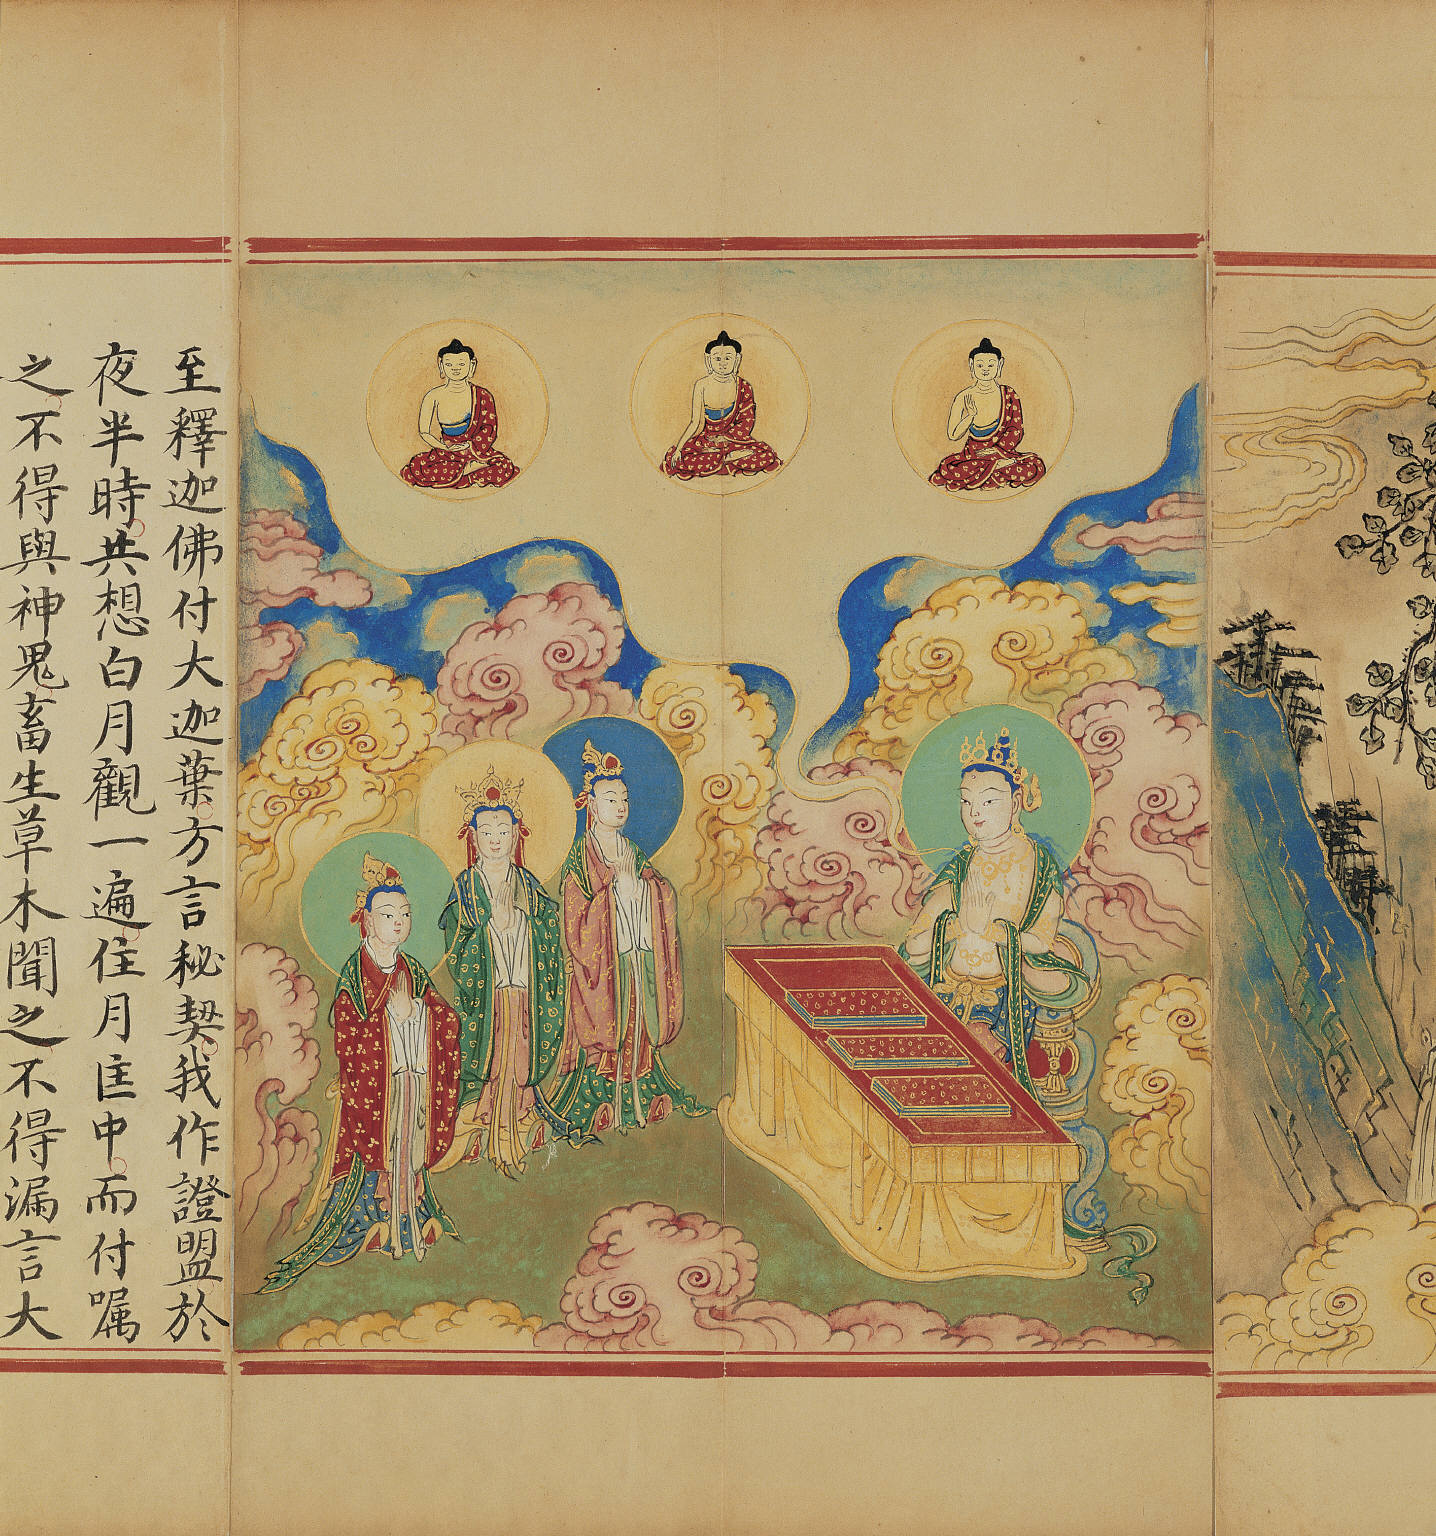 至釋迦佛付大迦葉方言秘契我作證盟於
夜半時共想白月觀一遍住月匡中而付嘱
之不得與神鬼畜生草木聞之不得漏言大